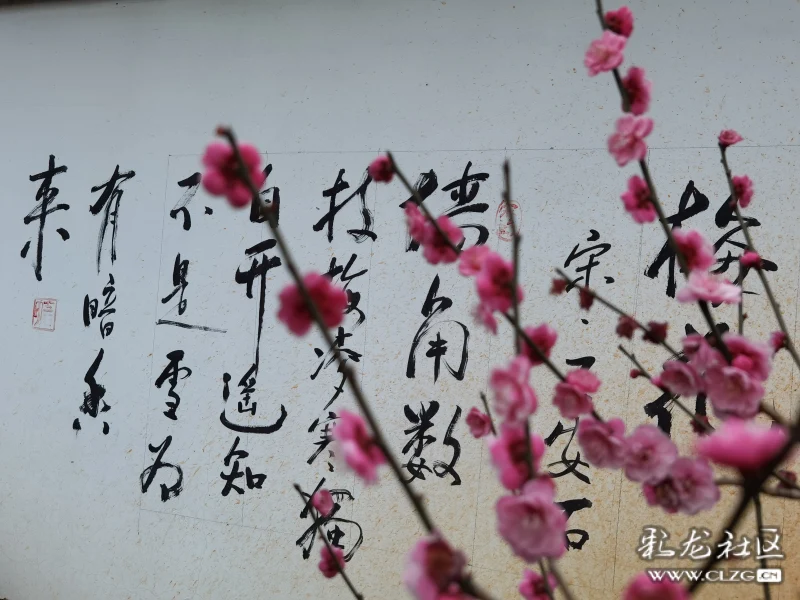 梅花
宋·王安石
墙角数
枝梅凌寒独
自开遥知
不是雪为
有暗香
来
彩龙社区
WWW.CLZG.CN